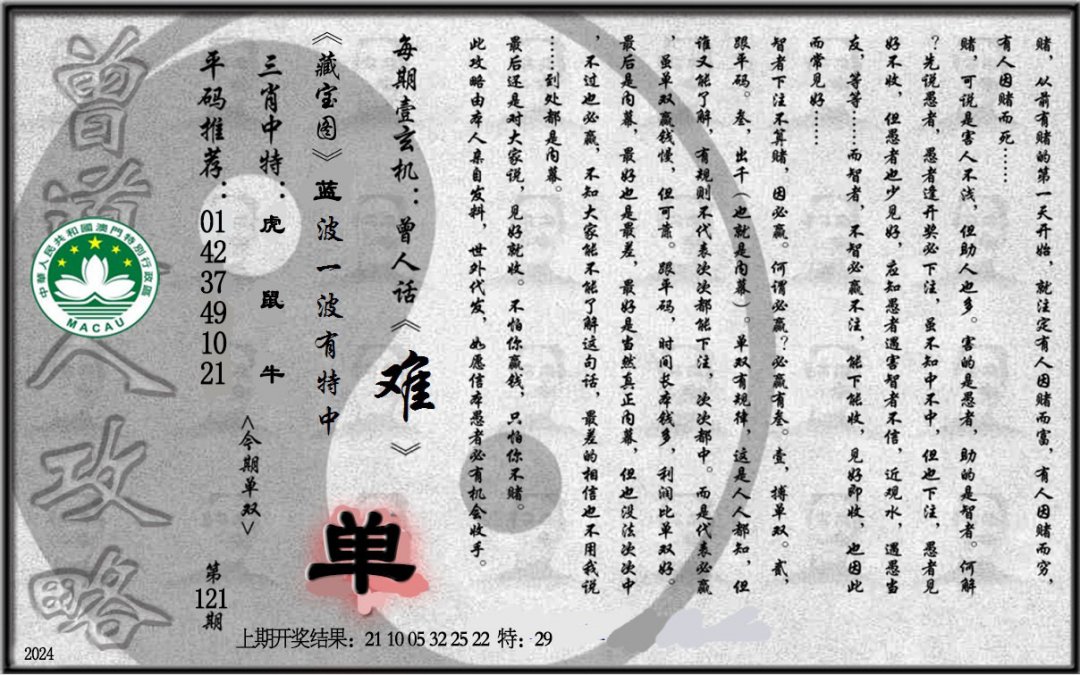 赌，从前有赌的第一天开始，就注定有人因赌而富，有人因赌而穷，
有人因赌而死……
赌，可说是害人不浅，但助人也多。害的是愚者，助的是智者。何解
？先说愚者，愚者逢开奖必下注，虽不知中不中，但也下注，愚者见
好不收，但愚者也少见好，应知愚者遇害智者不信，近观水，遇愚当
友，等等……而智者，不智必赢不注，能下能收，见好即收，也因此
而常见好……
智者下注不算赌，因必赢。何谓必赢？必赢有叁。壹，搏单双。贰，
跟平码。叁，出千（也就是内幕）。单双有规律，这是人人都知，但
谁又能了解，有规则不代表次次都能下注，次次都中。而是代表必赢
，虽单双赢钱慢，但可靠。跟平码，时间长本钱多，利润比单双好。
最后是内幕，最好也是最差，最好是当然真正内幕，但也没法次次中
，不过也必赢，不知大家能不能了解这句话，最差的相信也不用我说
……到处都是内幕。
最后还是对大家说，见好就收。不怕你赢钱，只怕你不赌。
此攻略由本人亲自发料，世外代发，如愿信本愚者必有机会收手。
每期壹玄机：曾人话《难》
《藏宝图》蓝波一波有特中
三肖中特：虎 鼠 牛
平码推荐：01 42 37 49 10 21
<今期单双>
单
第121期
曾道人攻略
中華人民共和國澳門特別行政區
MACAU
上期开奖结果：21 10 05 32 25 22 特：29
2024